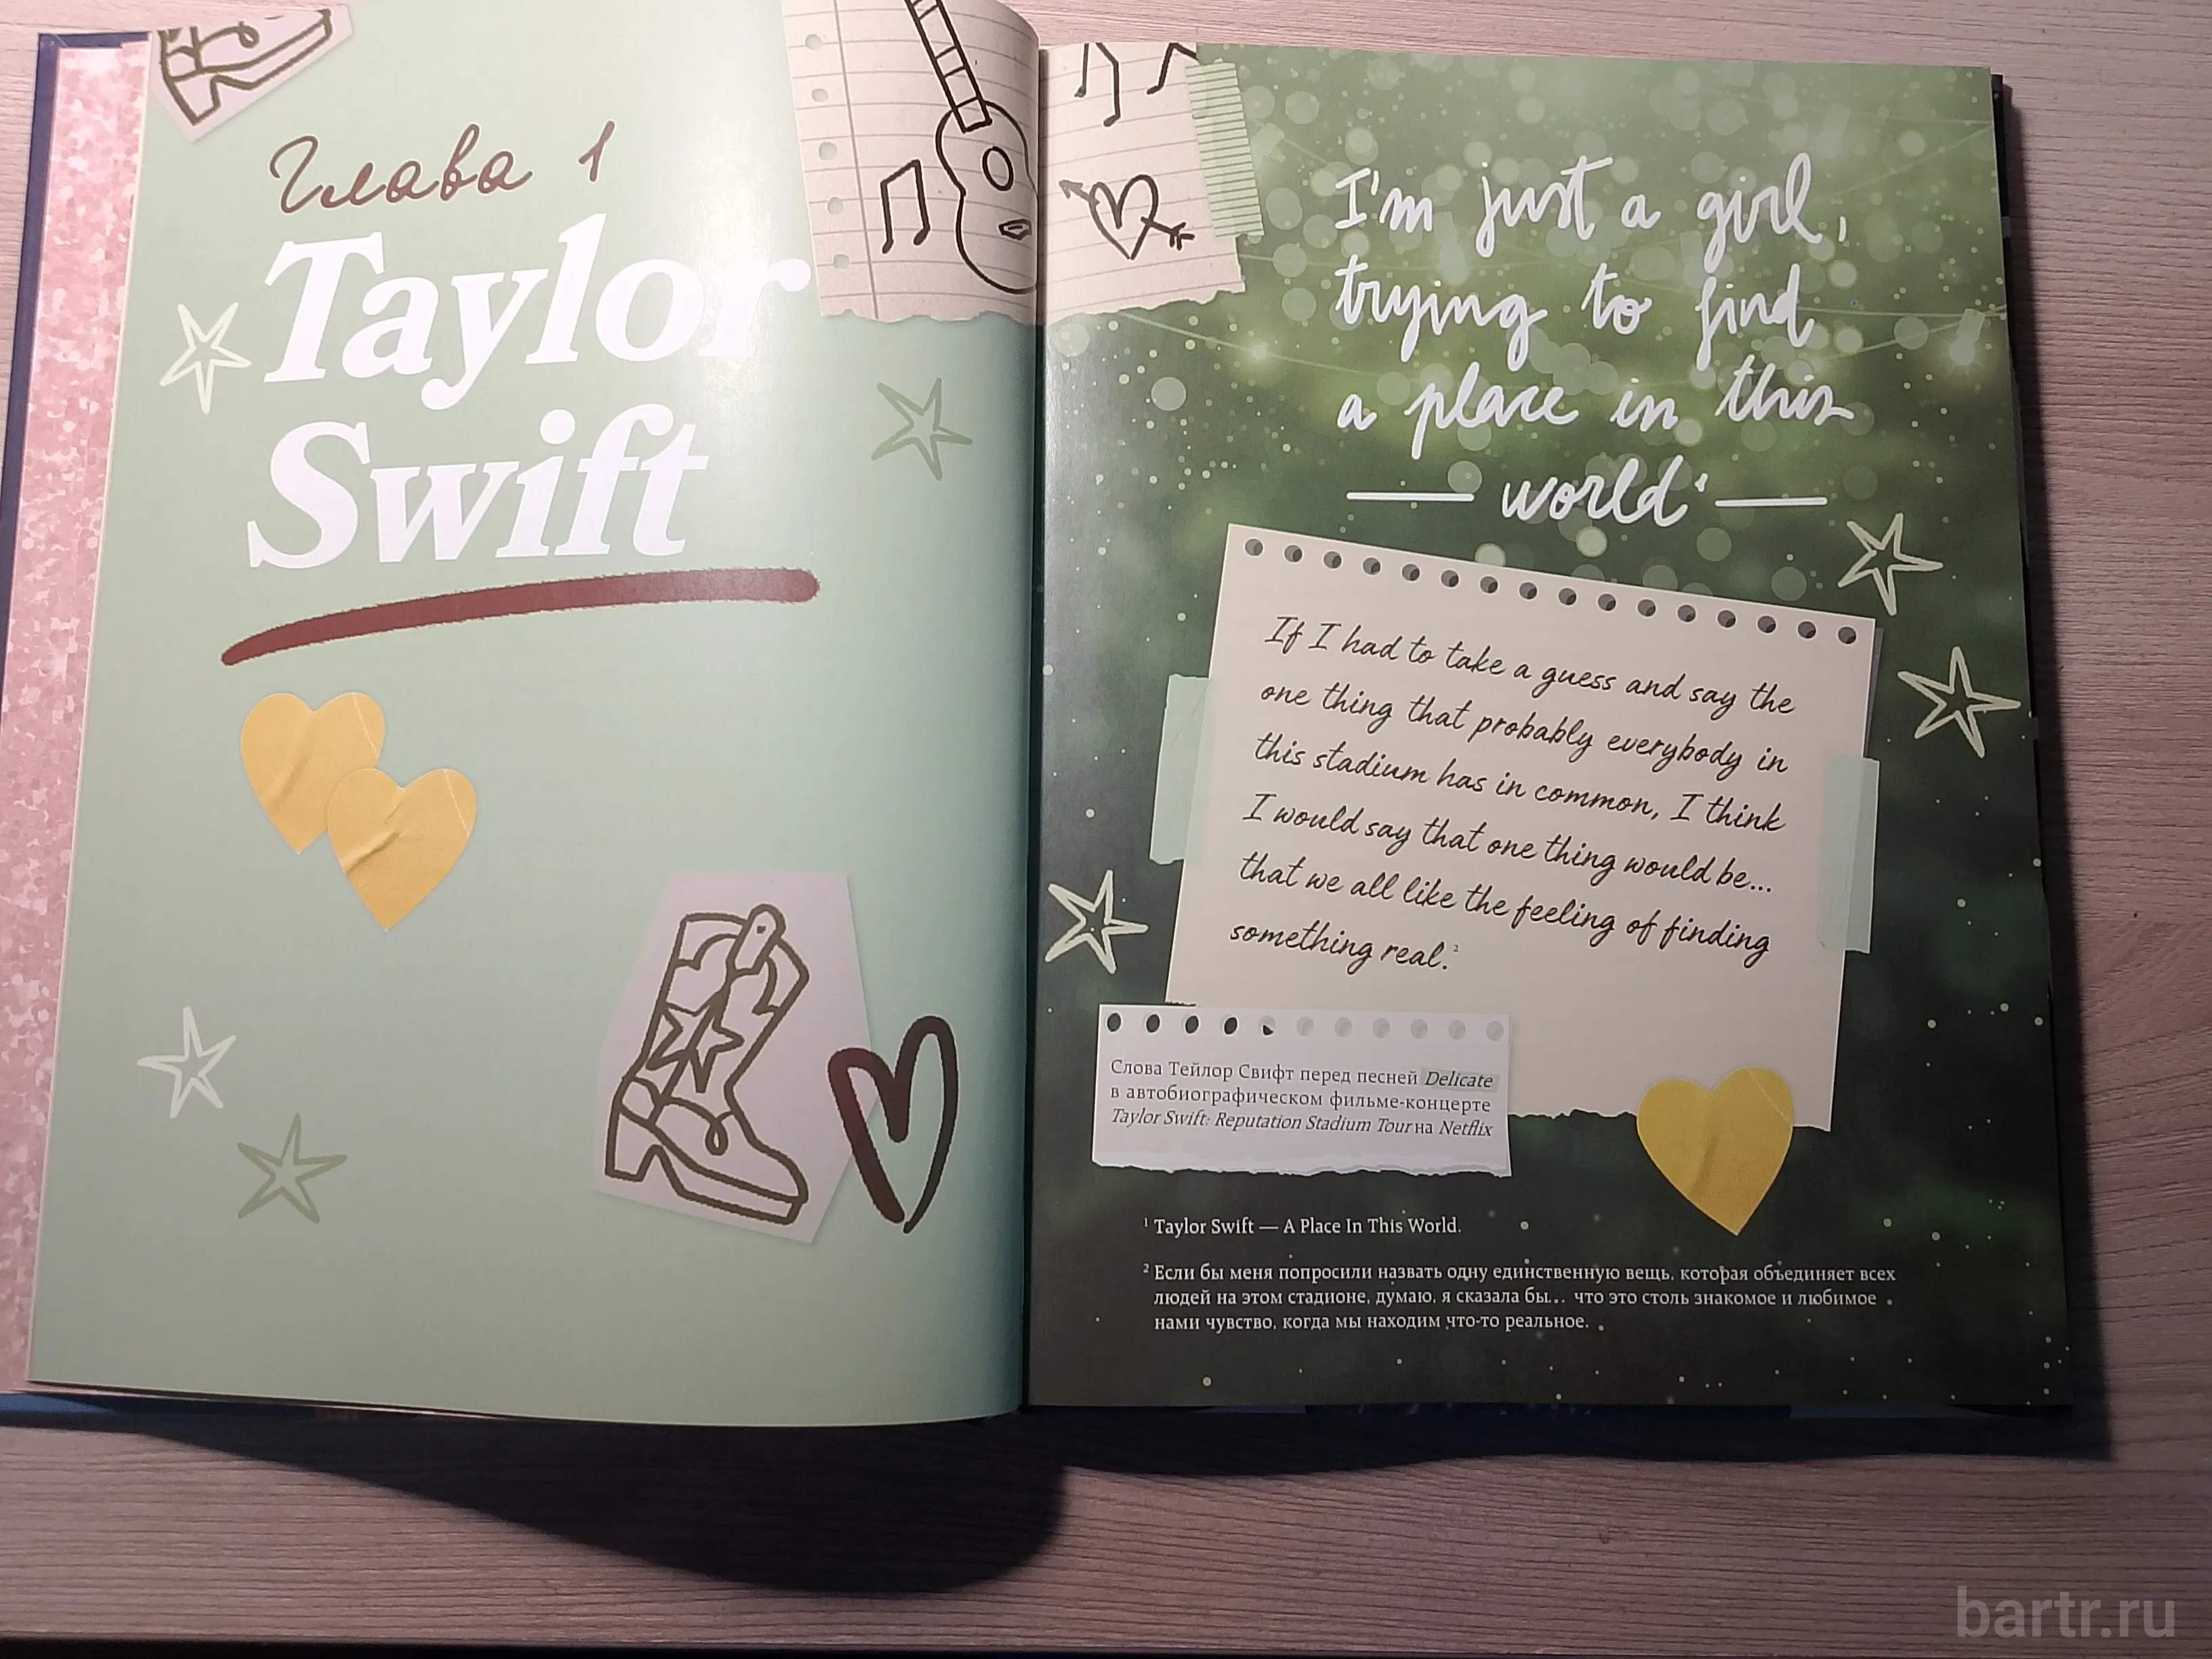 Глава 1
Taylor
Swift
I'm just a girl,
trying to find
a place in this
world¹
If I had to take a guess and say the
one thing that probably everybody in
this stadium has in common, I think
I would say that one thing would be...
that we all like the feeling of finding
something real.²
Слова Тейлор Свифт перед песней Delicate
в автобиографическом фильме-концерте
Taylor Swift: Reputation Stadium Tour на Netflix
¹ Taylor Swift — A Place In This World.
² Если бы меня попросили назвать одну единственную вещь, которая объединяет всех
людей на этом стадионе, думаю, я сказала бы... что это столь знакомое и любимое
нами чувство, когда мы находим что-то реальное.
bartr.ru